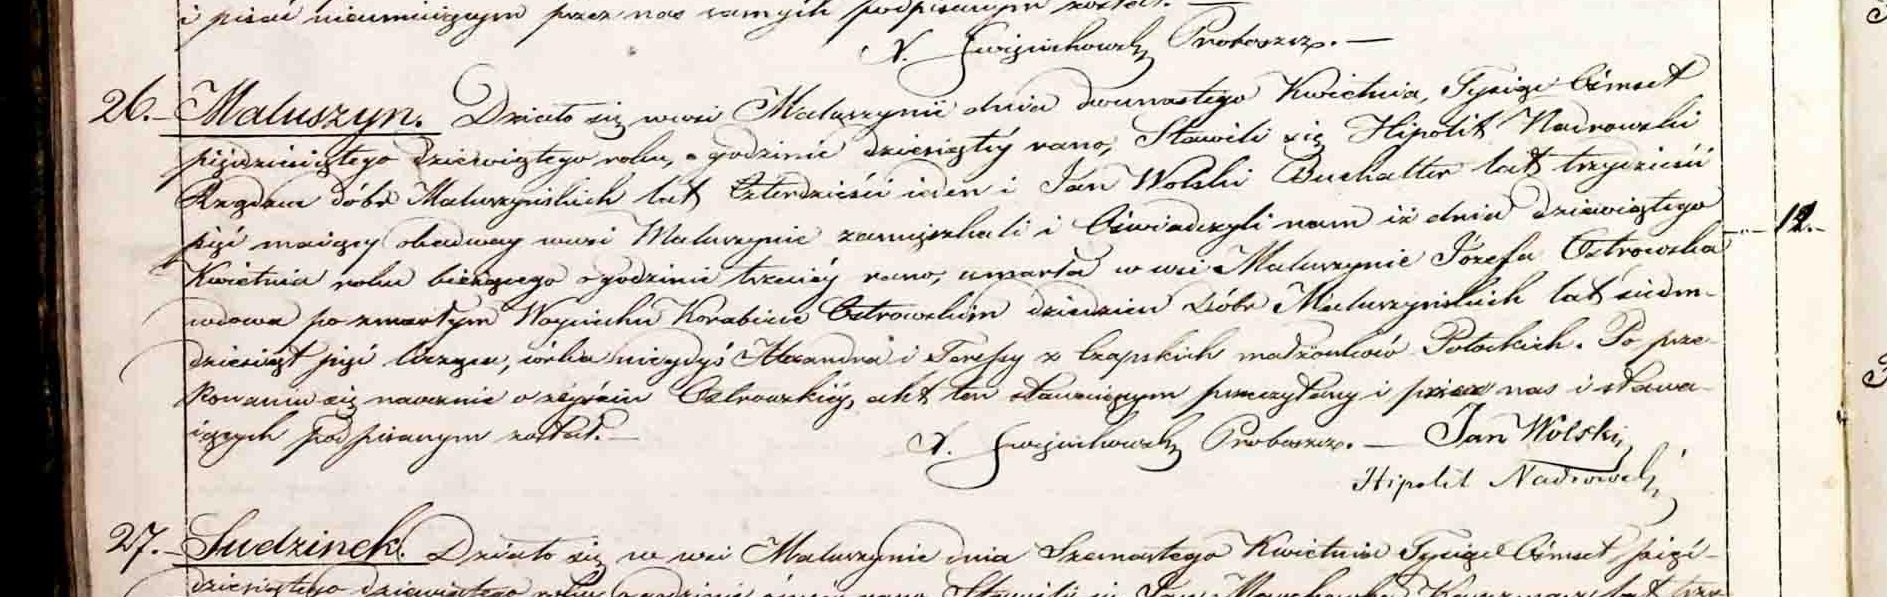 i pisać nieumiejącym przez nas samych podpisanym został. —
Proboszcz. —
26. Maluszyn. Działo się w wsi Maluszynie dnia dwunastego Kwietnia, Tysiąc Ośmset
pięćdziesiątego dziewiątego roku, o godzinie dziesiątej rano, Stawili się Hipolit Nadrowski
Rządzca dóbr Maluszyńskich lat Czterdzieści ieden i Jan Wolski Buchalter lat trzydzieści
pięć maiący obadway w wsi Maluszynie zamieszkali i Oświadczyli nam iż dnia dziewiątego
12.
Kwietnia roku bieżącego o godzinie trzeciéj rano, umarła w wsi Maluszynie Józefa Ostrowska
wdowa po zmarłym Woyciechu Korabicie Ostrowskim dziedzicu Dóbr Maluszyńskich lat siedm-
dziesiąt pięć licząca, córka niegdyś Alexandra i Teressy z Czapskich małżonków Potockich. Po prze-
konaniu się naocznie o zeyściu Ostrowskiéj, akt ten stawaiącym przeczytany i przez nas i stawa-
iących podpisanym został. —
Proboszcz. — Jan Wolski
Hipolit Nadrowski
27. Sudzinek. Działo się w wsi Maluszynie dnia Kwietnia Tysiąc Ośmset pięć-
dziesiątego dziewiątego roku o godzinie rano, Stawili się Jan lat